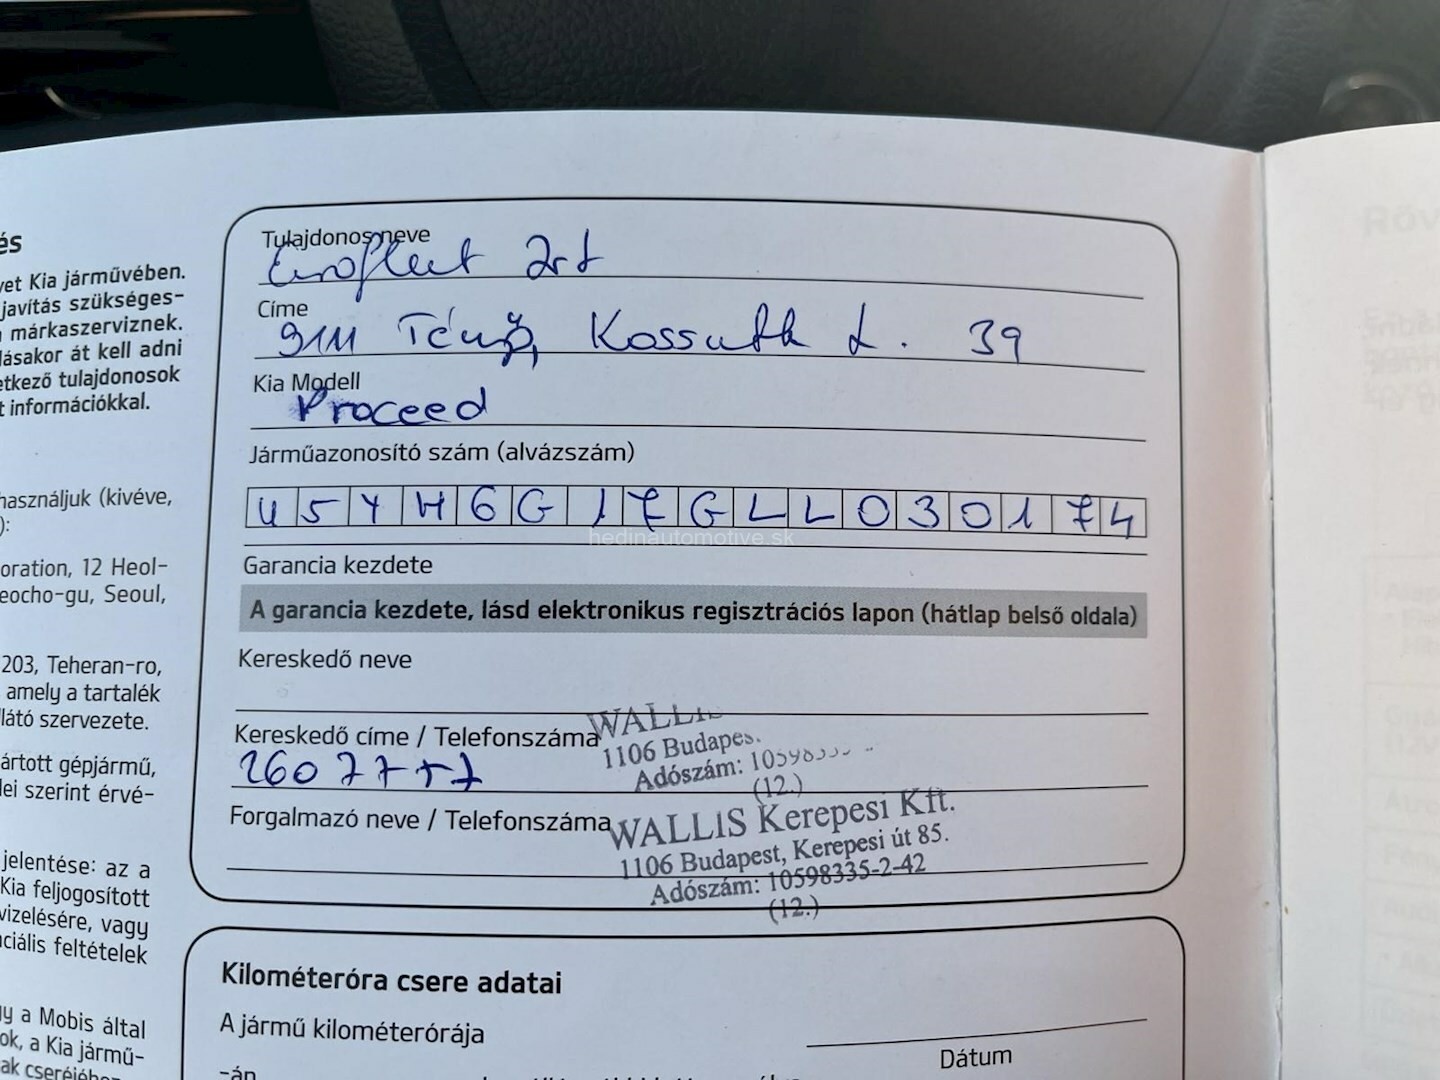 és
vet Kia járművében.
javítás szükséges-
márkaszerviznek.
lásakor át kell adni
etkező tulajdonosok
t információkkal.
használjuk (kivéve,
):
oration, 12 Heol-
eocho-gu, Seoul,
203, Teheran-ro,
amely a tartalék
látó szervezete.
ártott gépjármű,
lei szerint érvé-
jelentése: az a
Kia feljogosított
vizelésére, vagy
ciális feltételek
gy a Mobis által
ok, a Kia jármű-
ak cseréjéhez
Tulajdonos neve
Eurofleet Zrt
Címe
9111 Tényő, Kossuth L. 39
Kia Modell
Proceed
Járműazonosító szám (alvázszám)
U5YH6G17GLL030174
hedinautomotive.sk
Garancia kezdete
A garancia kezdete, lásd elektronikus regisztrációs lapon (hátlap belső oldala)
Kereskedő neve
Kereskedő címe / Telefonszáma
2607777
WALLIS
1106 Budapes.
Adószám: 10598335
(12.)
Forgalmazó neve / Telefonszáma
WALLIS Kerepesi Kft.
1106 Budapest, Kerepesi út 85.
Adószám: 10598335-2-42
(12.)
Kilométeróra csere adatai
A jármű kilométerórája
Dátum
-án